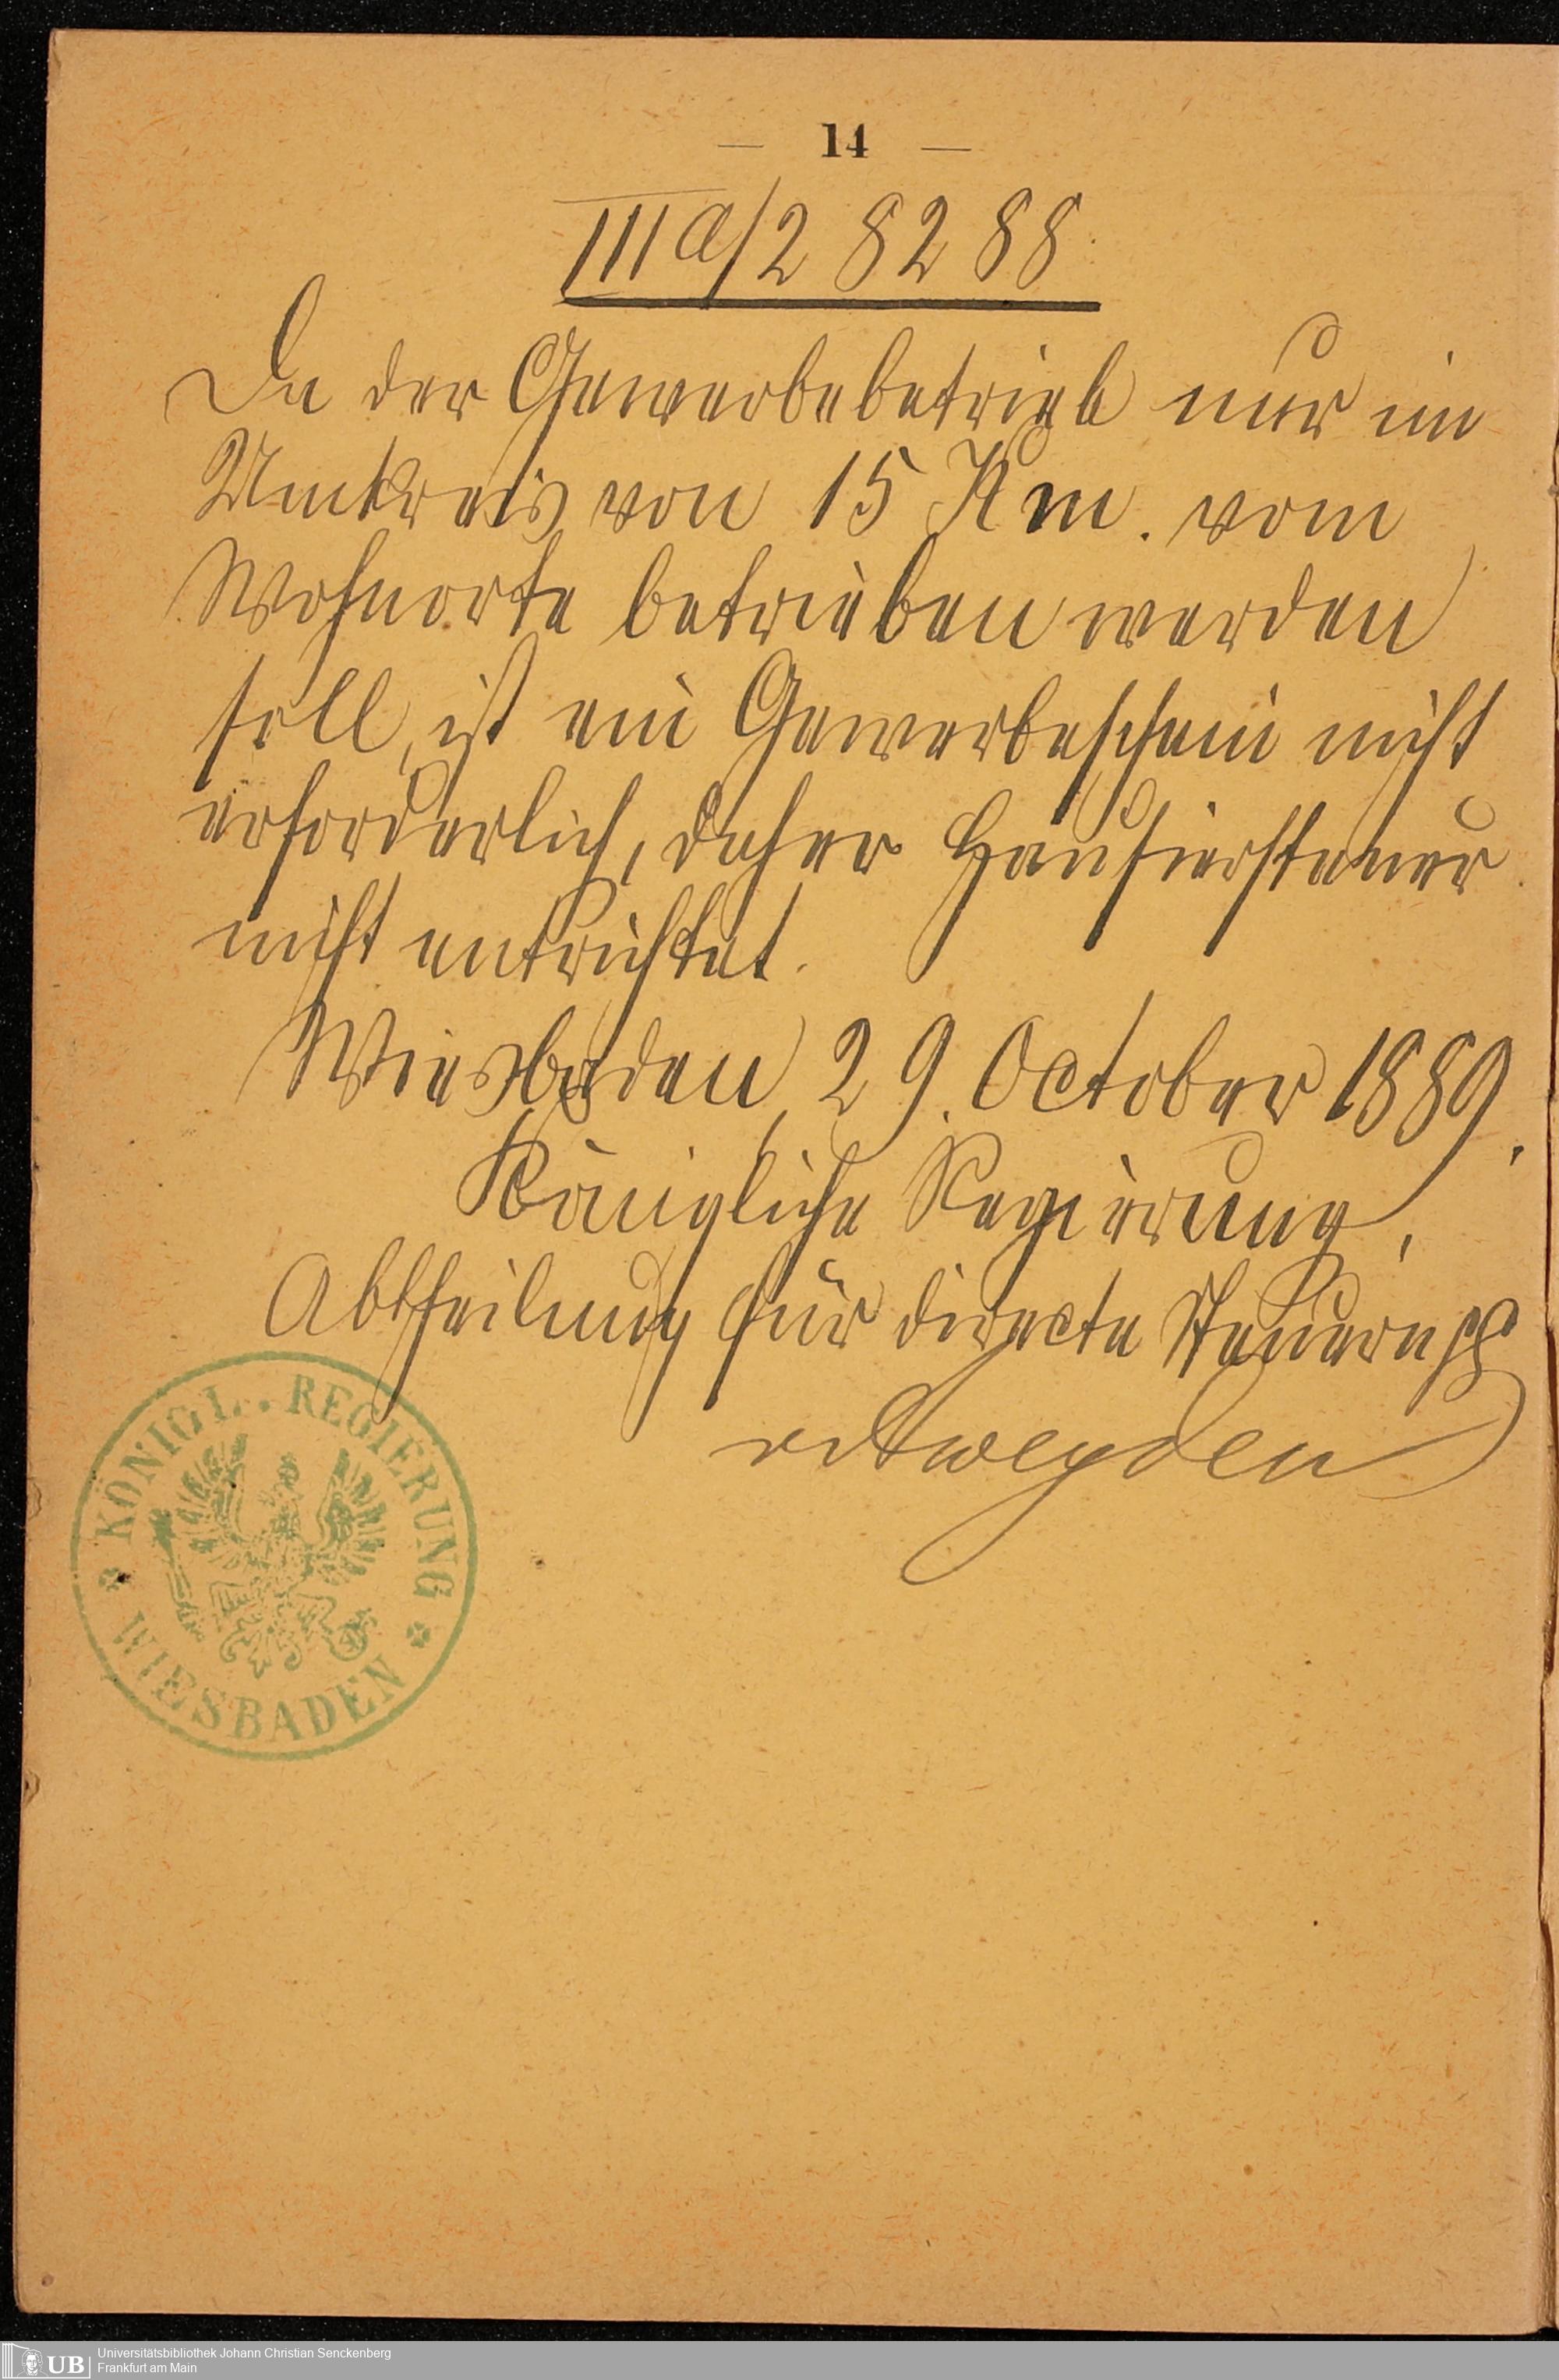 — 14 —
IIIa/2 8288.
Da der Gewerbebetrieb nur im
Umkreis von 15 Km. vom
Wohnorte betrieben werden
soll, ist ein Gewerbeschein nicht
erforderlich, daher Hausiersteuer
nicht entrichtet.
Wiesbaden, 29. October 1889.
Königliche Regierung,
Abtheilung für directe Steuern pp
KÖNIGL. REGIERUNG
WIESBADEN
UB
Universitätsbibliothek Johann Christian Senckenberg
Frankfurt am Main